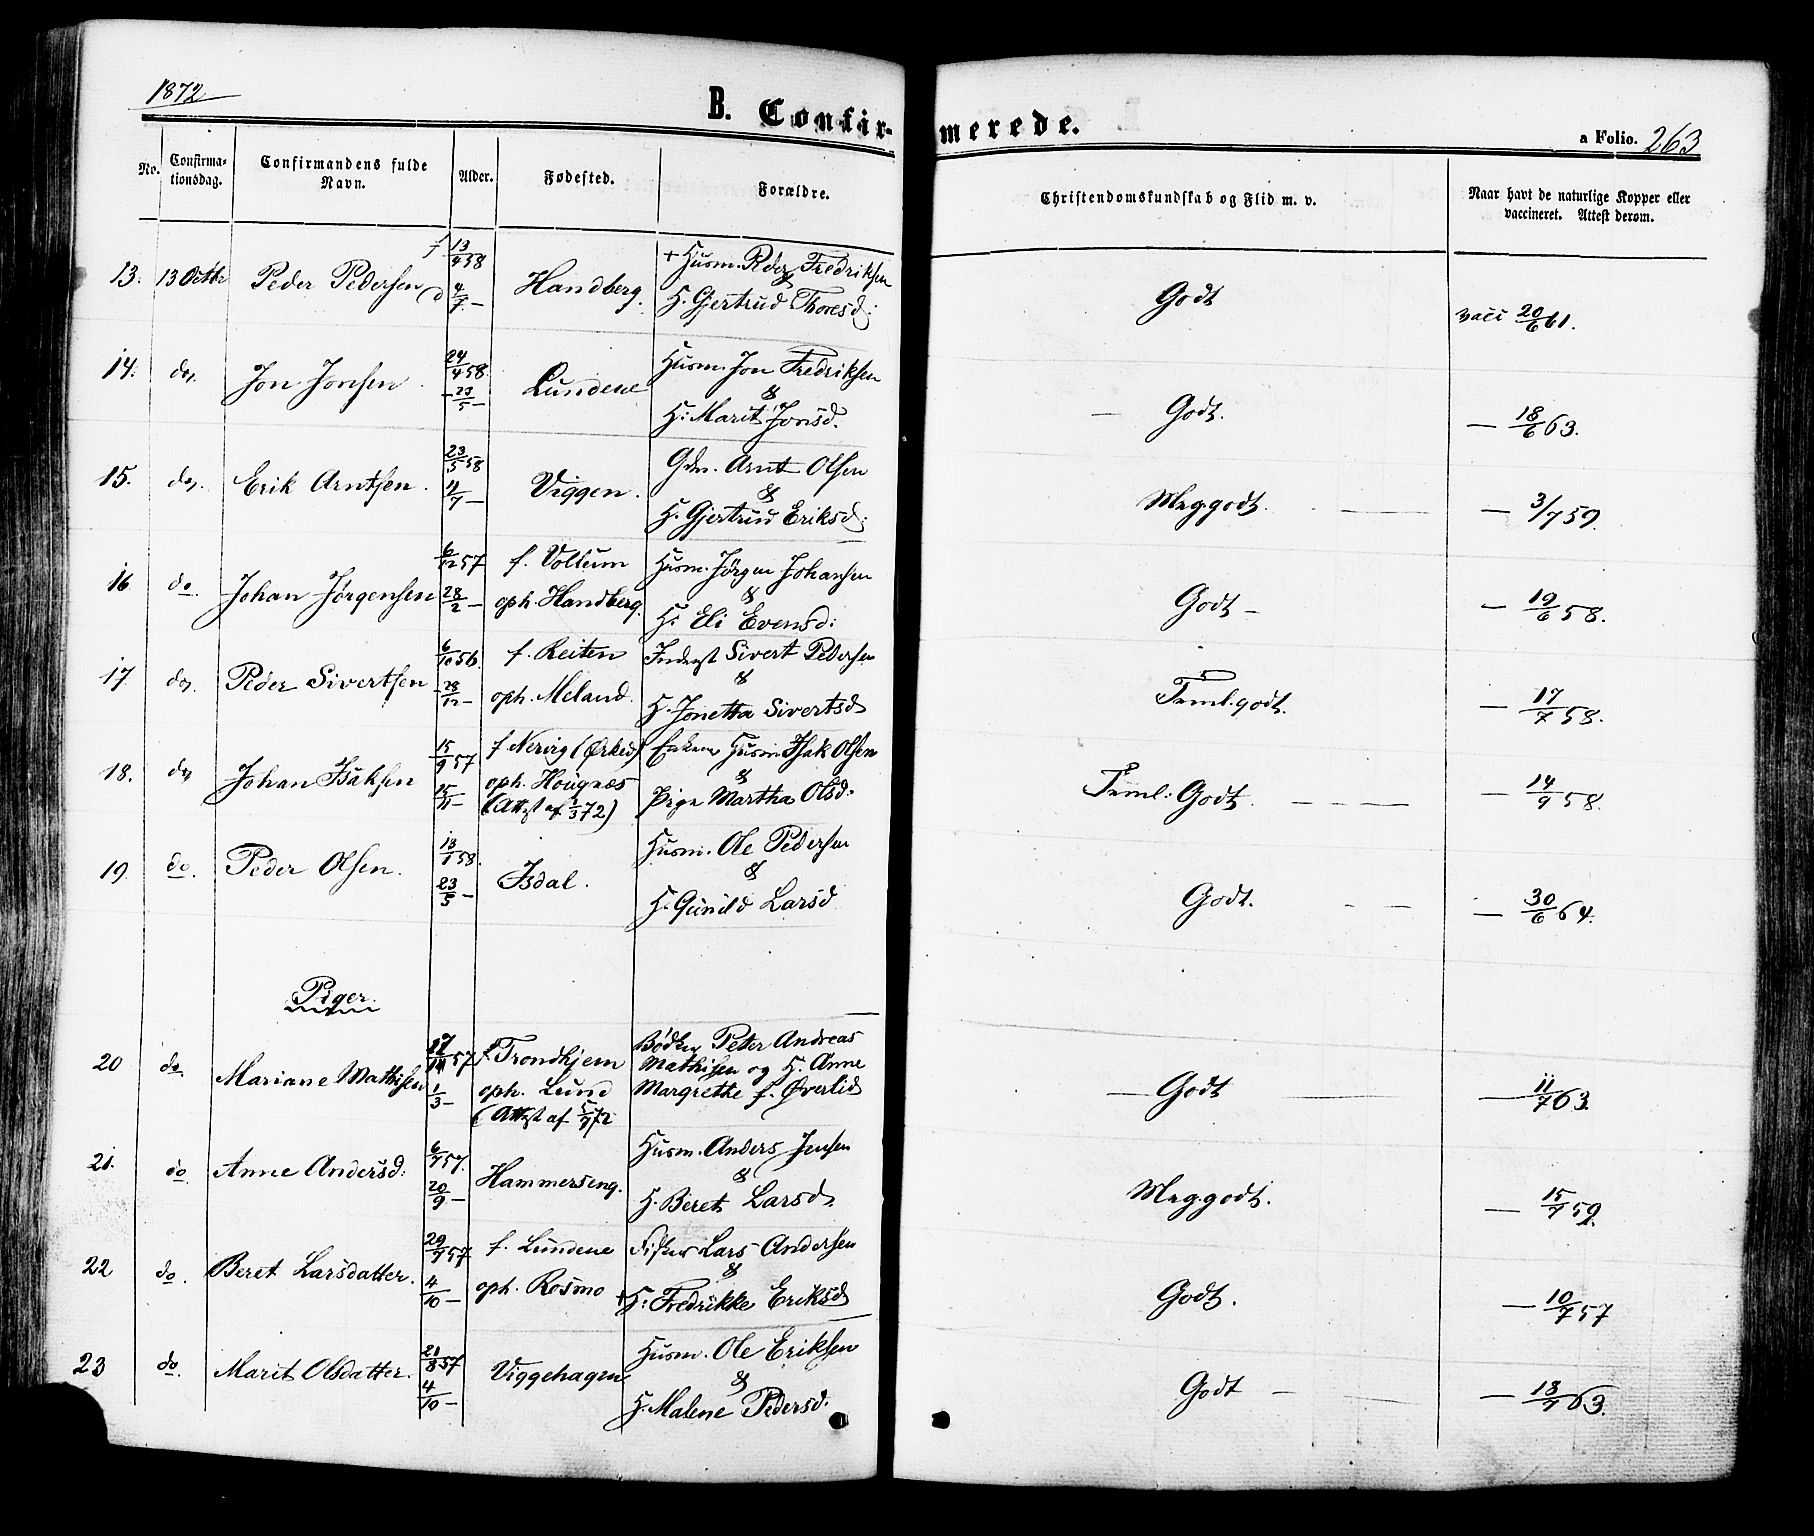 1872
B. Confir-
merede.
a Folio. 263
No. Confirma-tionsdag. Confirmandens fulde Navn. Alder. Fødested. Forældre. Christendomskundskab og Flid m. v. Naar havt de naturlige Kopper eller vaccineret. Attest derom.
f 13/4 58 + Husm. Peder Fredriksen
13. 13 Octbr Peder Pedersen Handberg. & Godt
d 4/7 - H. Gjertrud Thoresd: vacc 20/6 61.
24/4 58. Husm. Jon Fredriksen
14. do, Jon Jonsen Lundene & — Godt.
- 23/5 - H: Marit Jonsd. — 18/6 63.
23/5 58 Gdm. Arnt Olsen
15. do, Erik Arntsen. Viggen. & Meg. godt.
4/7 - H. Gjertrud Eriksd: — 3/7 59.
6/12 57 f. Vollum Husm. Jørgen Johansen
16 do. Johan Jørgensen & Godt -
28/2 - oph. Handberg. H: Eli Evensd: — 19/6 58.
6/10 56. f. Reiten Inderst Sivert Pedersen
17 do, Peder Sivertsen & Teml. godt.
- 28/12 - oph. Meland. H. Jonetta Sivertsd — 17/7 58.
15/9 57 f Nervig (Ørked) Husm Isak Olsen
18. do, Johan Isaksen oph. Hougnæs & Teml: Godt.
15/11 - (Attest af 1/3 72) Pige Martha Olsd. — 14/9 58.
13/1 58. Husm. Ole Pedersen
19. do. Peder Olsen. Isdal. & Godt.
23/5 - H. Gunild Larsd — 30/6 64.
Piger.
57 f. Trondhjem Bødker Peter Andreas
20 do Mariane Mathisen oph. Lund Mathisen og H. Anne — Godt
1/3 - (Attest af 5/7 72 Margrethe f. Øverlid — 11/7 63.
6/7 57. Husm. Anders Jensen
21. do Anne Andersd: Hammerseng. & Meg. godt.
20/9 - H. Beret Larsd. — 15/7 59.
29/7 57 f. Lundene Fisker Lars Andersen
22 do. Beret Larsdatter. & Godt.
4/10 - oph. Rosmo + H: Fredrikke Eriksd — 10/7 57
21/8 57 Husm. Ole Eriksen
23 do. Marit Olsdatter. Viggehagen & Godt -
4/10 - H. Malene Pedersd. — 18/7 63.